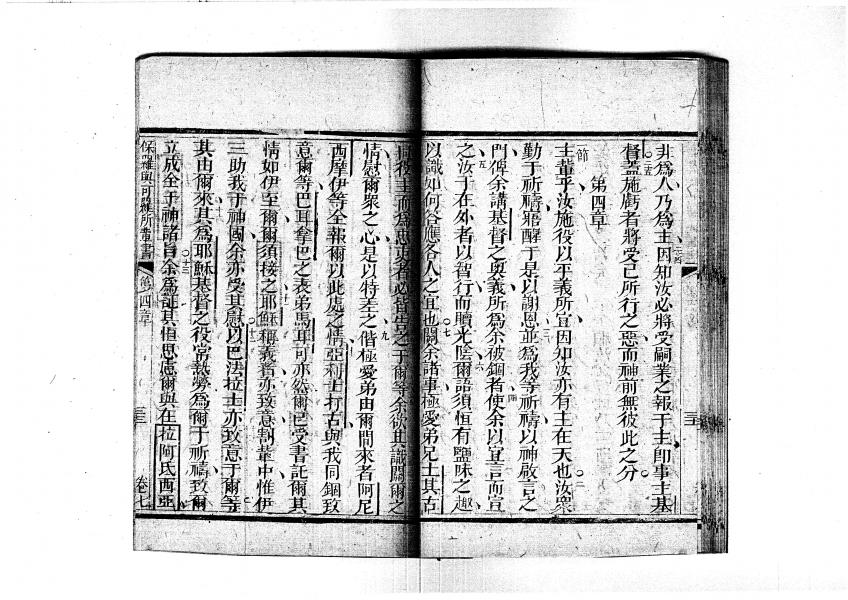 非為人乃為主因知汝必將受嗣業之報于主即事主基
督蓋施虧者將受己所行之惡而神前無彼此之分
第四章
主輩乎汝施役以平義所宜因知汝亦有主在天也汝衆
勤于祈禱寤醒于是以謝恩並為我等祈禱以神啟言之
門俾余講基督之奧義所為余被錮者使余以宜言而宣
之汝于在外者以智行而贖光陰爾語須恒有鹽味之趣
以識如何答應各人之宜也關余諸事極愛弟兄士其古
同役主而為忠吏者必皆告之于爾等余欲其識關爾之
情慰爾衆之心是以特差之偕極愛弟由爾間來者阿尼
西摩伊等全報爾以此處之情亞利士打古與我同錮致
意爾等巴耳拿巴之表弟馬耳可亦然爾已受書託爾其
情如伊至爾爾須接之耶穌稱義者亦致意割輩中惟伊
三助我于神國余亦受其慰以巴法拉士亦致意于爾等
其由爾來其為耶穌基督之役常熱勞為爾于祈禱致爾
立成全于神諸旨余為証其恒思慮爾與在拉阿氏西亞
保羅與可羅所輩書
第四章
卷七